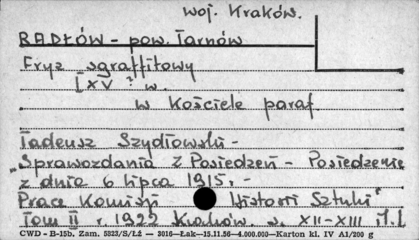 woj. Kraków.
RADŁÓW - pow. Tarnów
Fryz sgraffitowy
XV ? w.
w Kościele paraf.
Tadeusz Szydłowski -
"Sprawozdania z Posiedzeń - Posiedzenie
z dnia 6 lipca 1915. -
Prace Komisji Historii Sztuki"
Tom II r. 1922 Kraków. s. XII-XIII
CWD - B-15b. Zam. 5823/S/Łż - 3016-Łak-15.11.56-4.000.000-Karton kl. IV A1/200 g